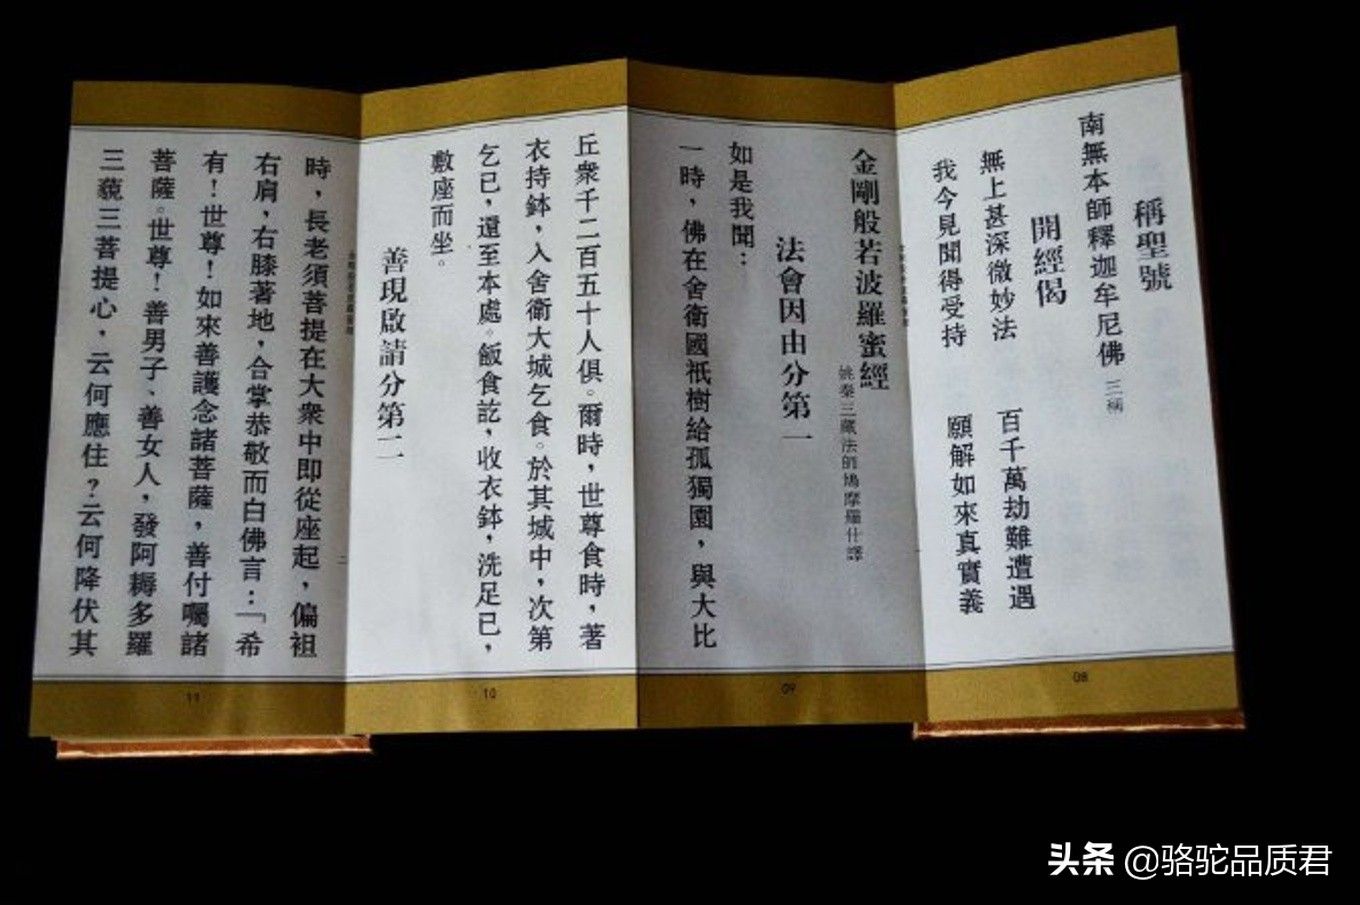 稱聖號
南無本師釋迦牟尼佛 三稱
開經偈
無上甚深微妙法 百千萬劫難遭遇
我今見聞得受持 願解如來真實義
08
金剛般若波羅蜜經
姚秦三藏法師鳩摩羅什譯
法會因由分第一
如是我聞：
一時，佛在舍衛國祇樹給孤獨園，與大比
09
丘衆千二百五十人俱。爾時，世尊食時，著
衣持鉢，入舍衛大城乞食。於其城中，次第
乞已，還至本處。飯食訖，收衣鉢，洗足已，
敷座而坐。
善現啟請分第二
10
時，長老須菩提在大衆中即從座起，偏袒
右肩，右膝著地，合掌恭敬而白佛言：「希
有！世尊！如來善護念諸菩薩，善付囑諸
菩薩。世尊！善男子、善女人，發阿耨多羅
三藐三菩提心，云何應住？云何降伏其
11
头条 @骆驼品质君